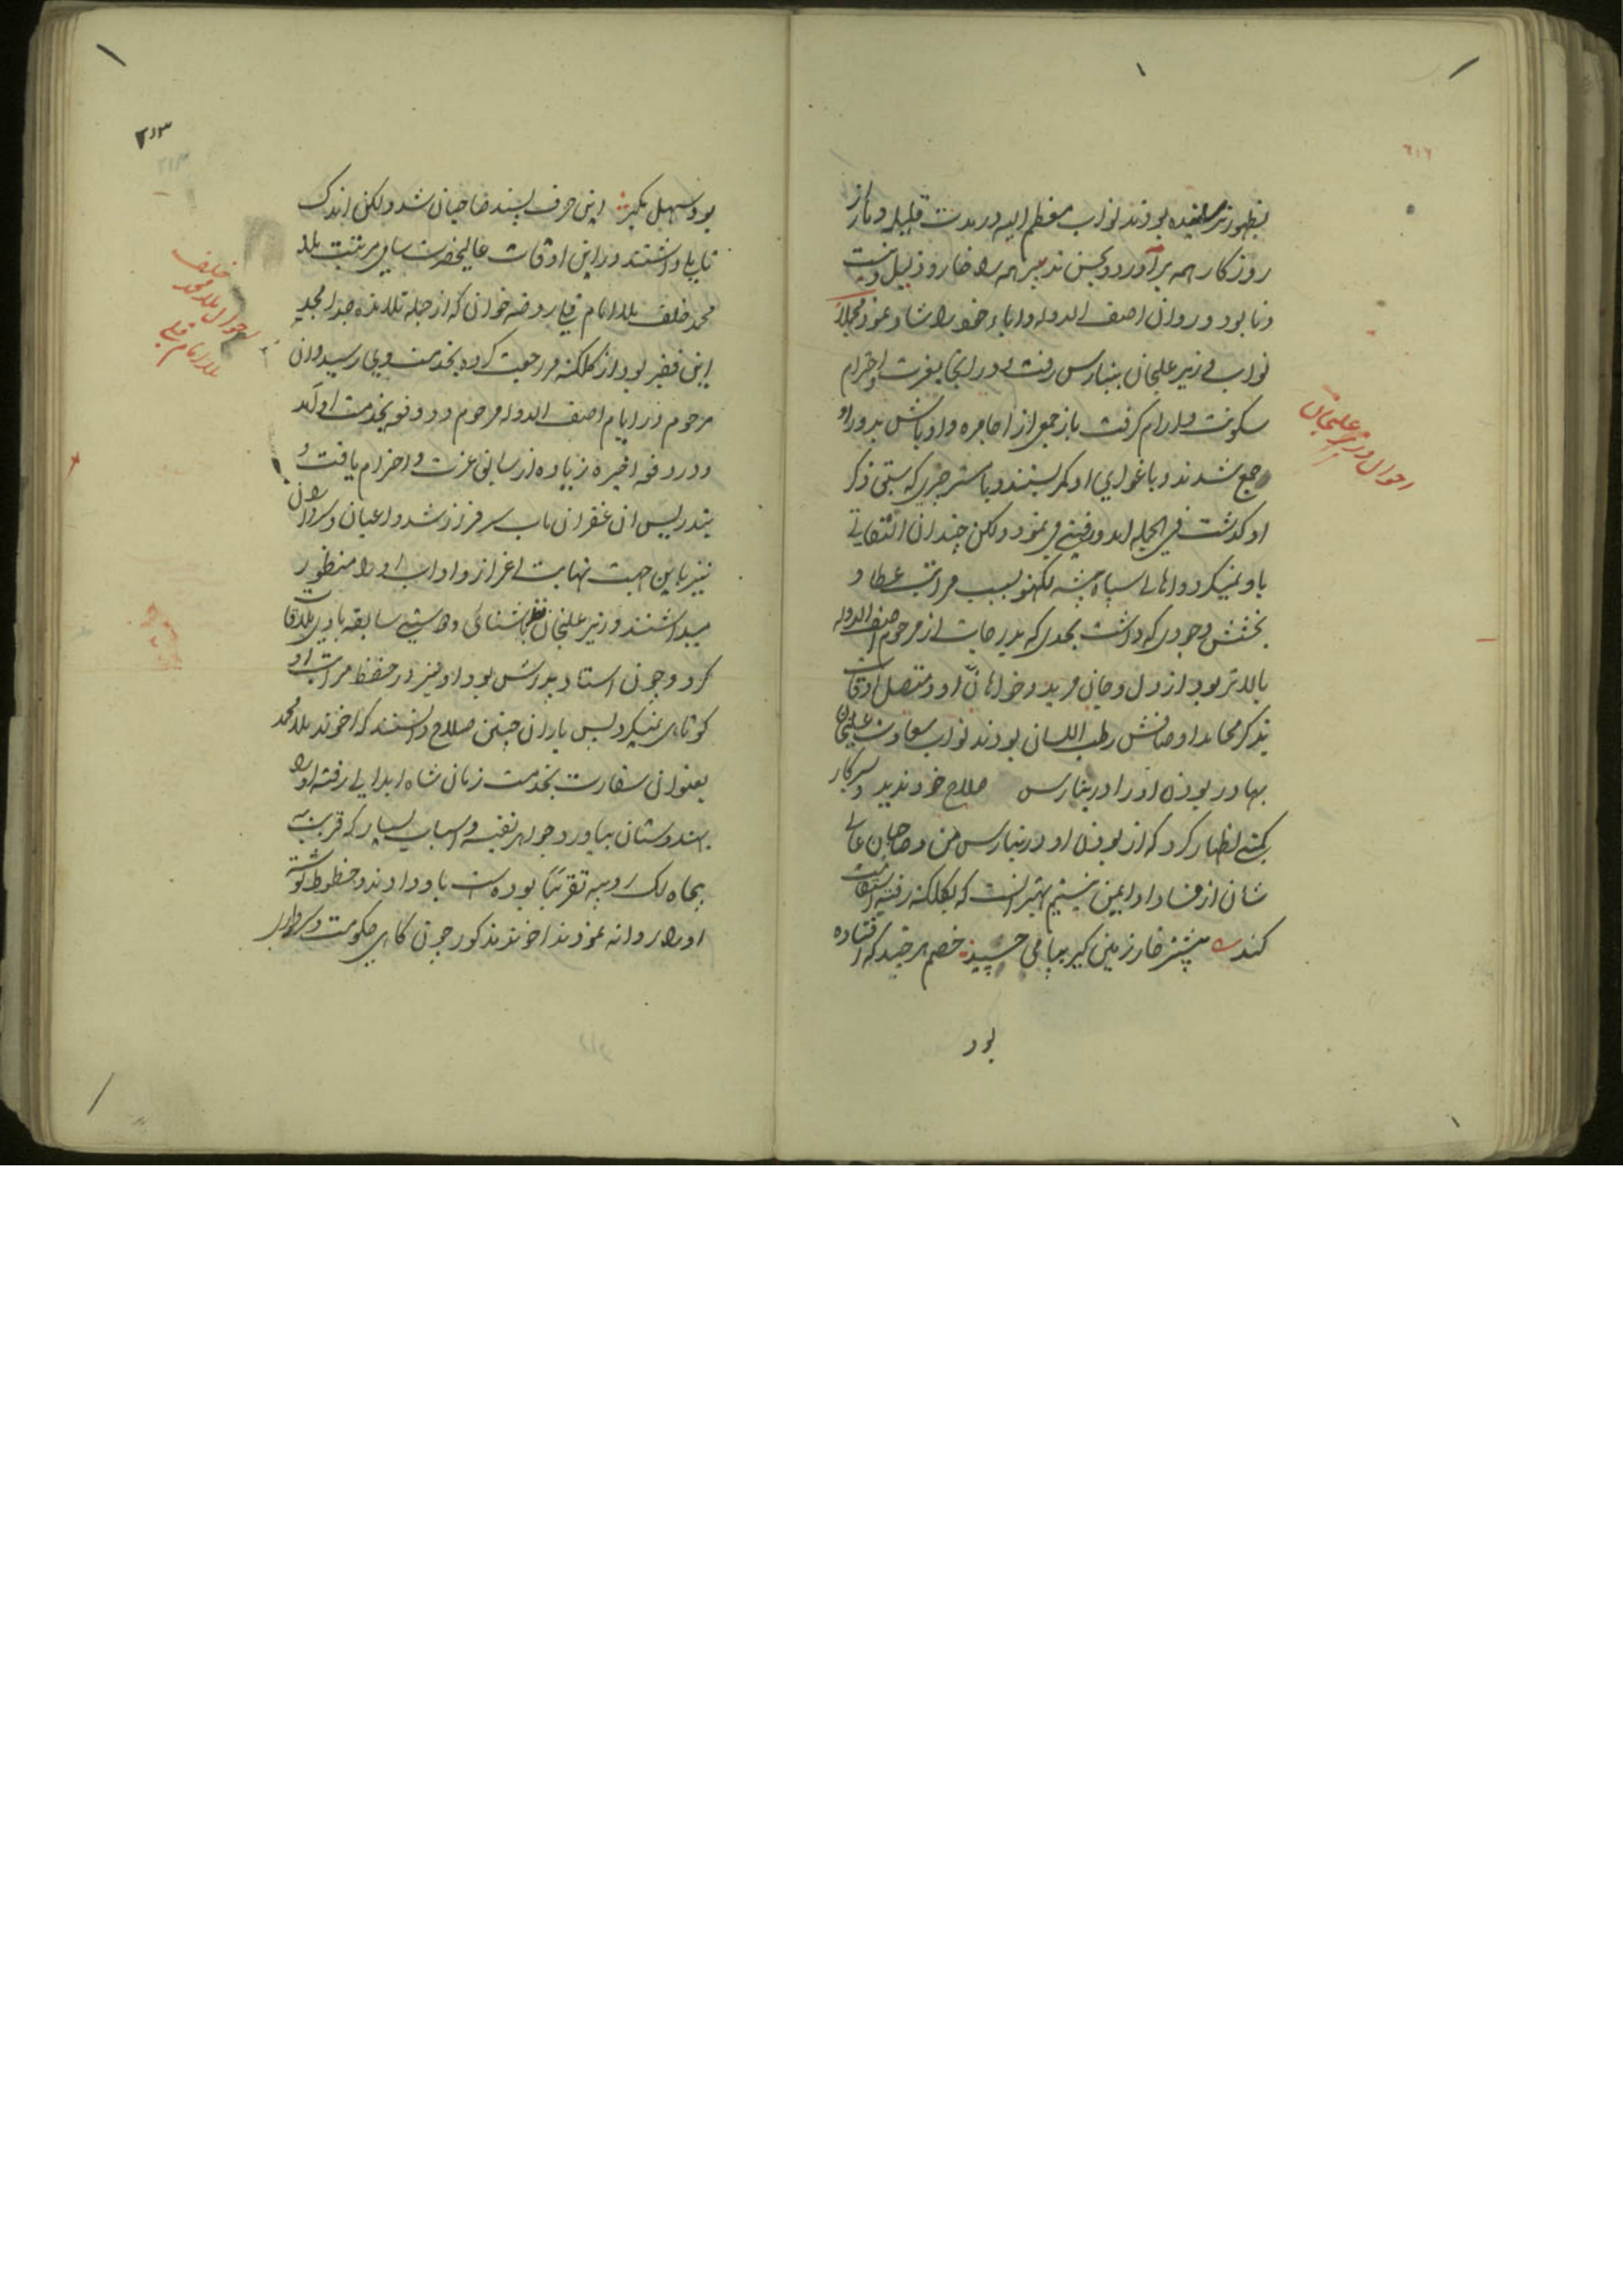 ۶۱۶
بظهور نرسانیده بودند نواب معظم الیه در مدت قلیله دمار از
روزکار همه برآورد و بحسن تدبیر همه را خار و ذلیل و نیست
و نابود و روان اصف الدوله و اباء خود را شاد نمود مجملاً
نواب وزیر علیخان ببنارس رفت و در انجا بعزت و احترام
سکونت و ارام کرفت باز جمعی از اجامره و اوباش بدور او
جمع شدند و باغوای او کمر بستند و با مستر چری که سبق ذکر
او کذشت فی الجمله امد و رفتی می نمود ولکن چندان التفاتی
باو نمیکرد و اهالی سپاه پیشه لکهنو بسبب مراتب عطا و
بخشش و جودی که داشت بحدی که بدرجات از مرحوم اصف الدوله
بالاتر بود از دل و جان مرید و خواهان او و متصل اوقات
بذکر محامد اوصافش رطب اللسان بودند نواب سعادت علیخان
بهادر بودن او را در بنارس صلاح خود ندید و بسرکار
کمپنی اظهار کرد که از بودن او در بنارس من و صاحبان عالی
شان از فساد او ایمن نیستیم بهتر انست که بکلکته رفته استقامت
کند بیشتر خار زمین کیر بپا می چسپد خصم هر چند که افتاده
بود
احوال وزیر علیخان
۶۱۳
بود سهل مکیر این حرف پسند صاحبان شد ولکن اندک
تاملی داشتند در این اوقات عالیحضرت سامی مرتبت ملا
محمد خلف ملا امام قلی روضه خوان که از جمله تلامذه جد امجد
این فقیر بود از کلکته مراجعت کرده بخدمت وی رسید و ان
مرحوم در ایام اصف الدوله مرحوم دو دفعه بخدمت او آمد
و در دفعه اخیره زیاده از سابق عزت و احترام یافت و
بتدریس ان غفران ماب سرفراز شد و اعیان و سرداران
نیز باین جهت نهایت اعزاز و اداب او را منظور
میداشتند وزیر علیخان نظر باشنائی و دوستی سابقه با وی ملاقات
کرد و چون استاد پدرش بود او نیز در حفظ مراتب او
کوتاهی نمیکرد پس یاران چنین صلاح دانستند که اخوند ملا محمد
بعنوان سفارت بخدمت زمان شاه ابدالی رفته او را
بهندوستان بیاورد جواهر نفیسه و اسباب بسیار که قریب به
پنجاه لک روپیه تقریباً بوده است باو دادند و خطوط نوشته
او را روانه نمودند اخوند مذکور چون کاهی حکومت و سرداری
احوال ملا محمد خلف
ملا امام قلی